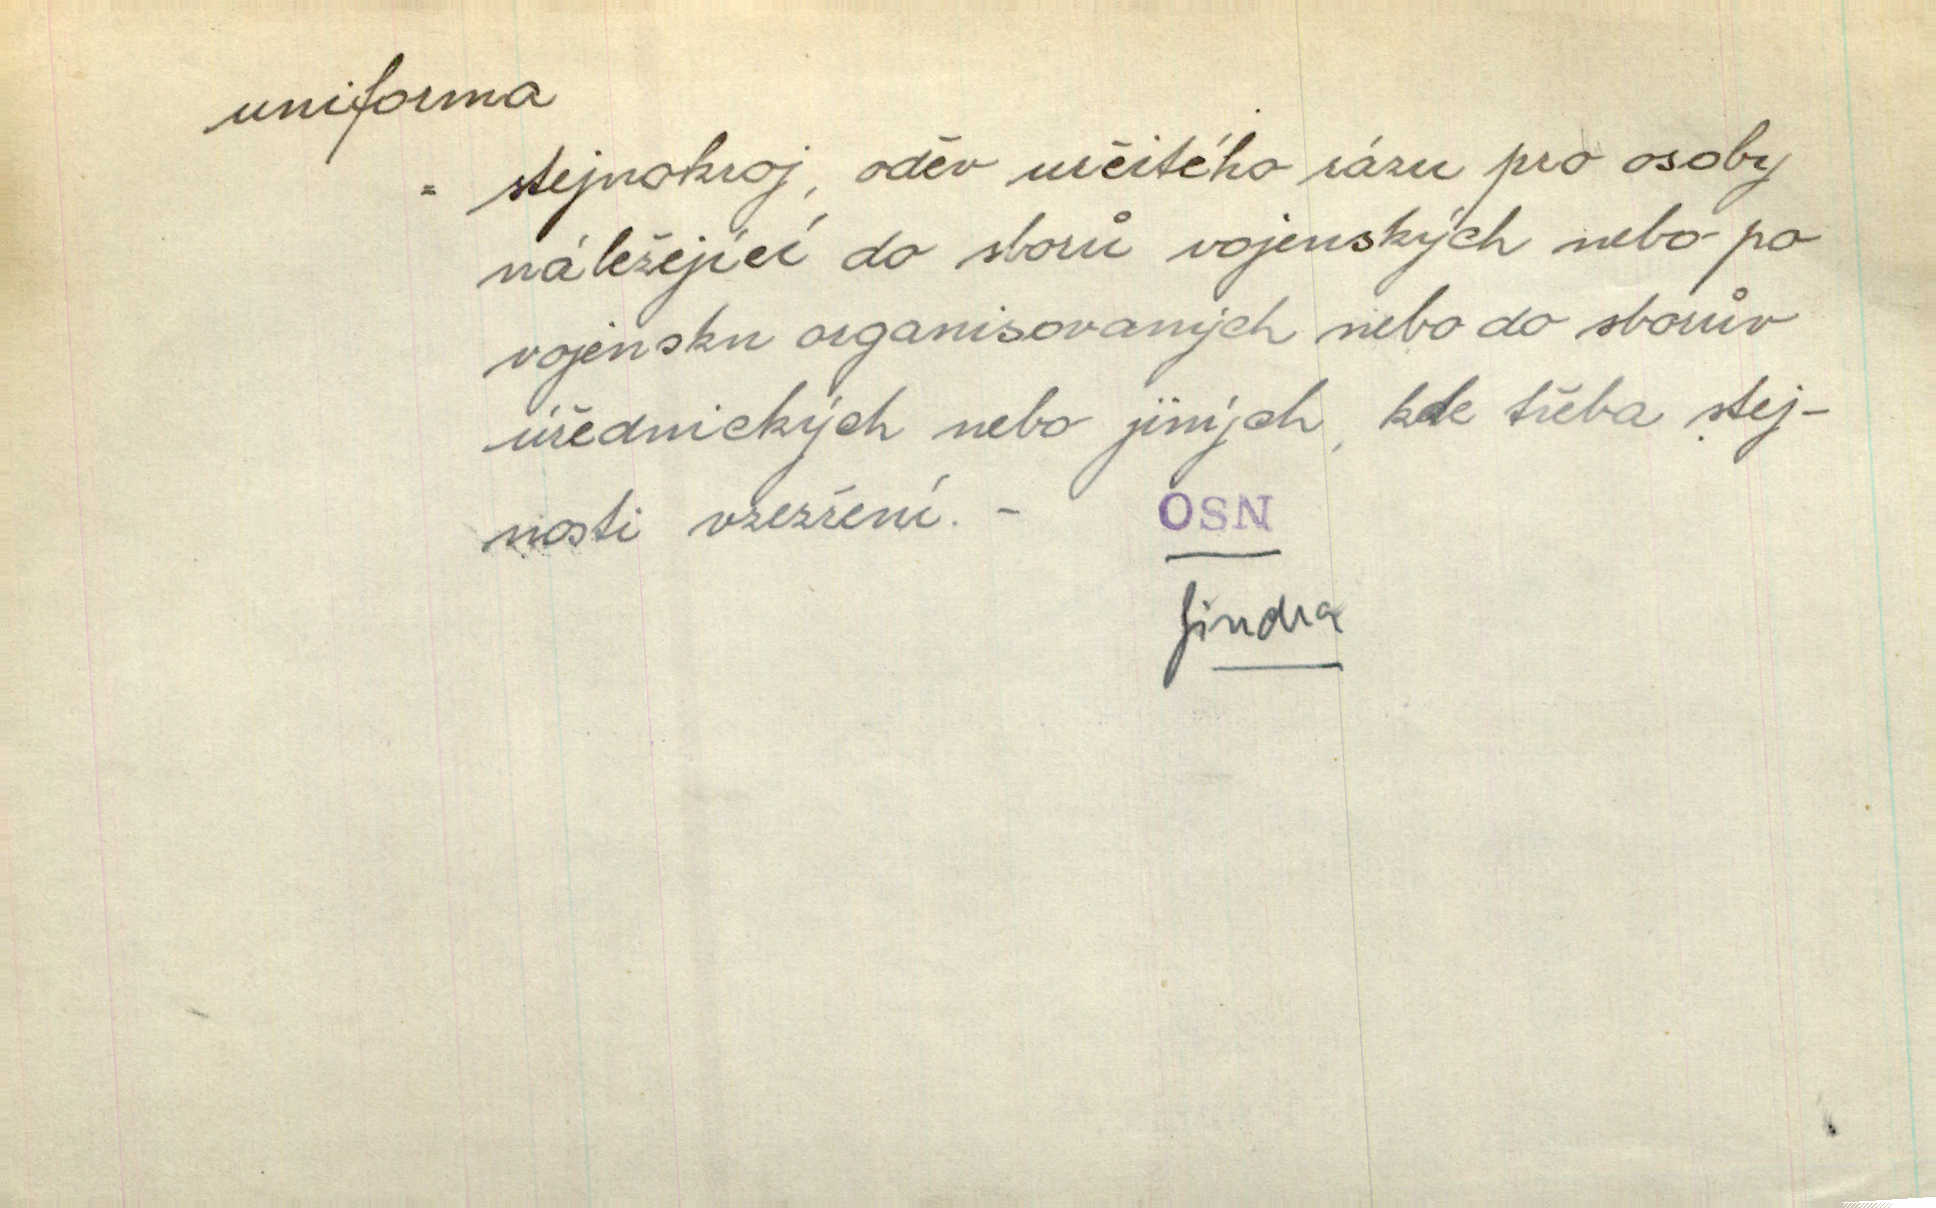 uniforma
= stejnokroj, oděv určitého rázu pro osoby
náležející do sborů vojenských nebo po
vojensku organisovaných nebo do sborův
úřednických nebo jiných, kde třeba stej-
nosti vzezření. - OSN
Jindra